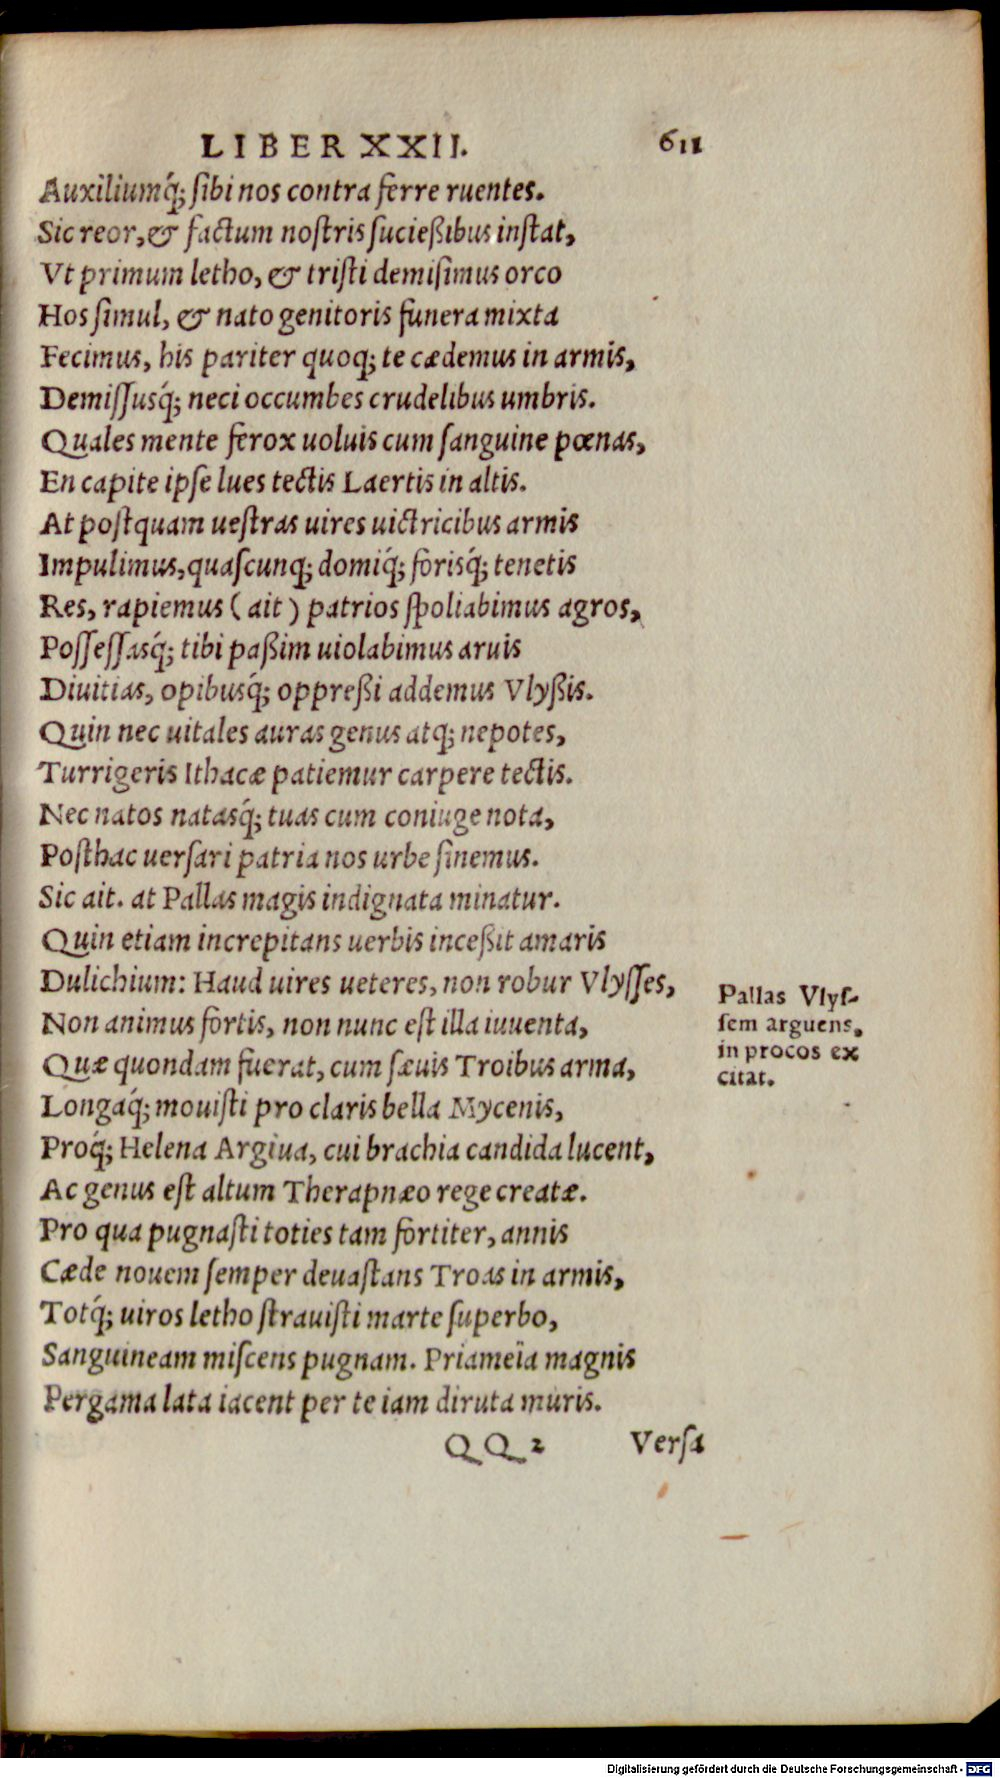 LIBER XXII. 611
Auxiliumq́; ſibi nos contra ferre ruentes.
Sic reor, & factum noſtris ſucießibus inſtat,
Vt primum letho, & triſti demiſimus orco
Hos ſimul, & nato genitoris funera mixta
Fecimus, his pariter quoq; te cædemus in armis,
Demiſſusq́; neci occumbes crudelibus umbris.
Quales mente ferox uoluis cum ſanguine pœnas,
En capite ipſe lues tectis Laertis in altis.
At poſtquam ueſtras uires uictricibus armis
Impulimus, quaſcunq; domiq́; foriſq́; tenetis
Res, rapiemus (ait) patrios ſpoliabimus agros,
Poſſeſſasq́; tibi paßim uiolabimus aruis
Diuitias, opibusq́; oppreßi addemus Vlyßis.
Quin nec uitales auras genus atq; nepotes,
Turrigeris Ithacæ patiemur carpere tectis.
Nec natos natasq́; tuas cum coniuge nota,
Poſthac uerſari patria nos urbe ſinemus.
Sic ait. at Pallas magis indignata minatur.
Quin etiam increpitans uerbis inceßit amaris
Dulichium: Haud uires ueteres, non robur Vlyſſes,
Non animus fortis, non nunc eſt illa iuuenta,
Quæ quondam fuerat, cum ſæuis Troibus arma,
Longaq́; mouiſti pro claris bella Mycenis,
Proq́; Helena Argiua, cui brachia candida lucent,
Ac genus eſt altum Therapnæo rege creatæ.
Pro qua pugnaſti toties tam fortiter, annis
Cæde nouem ſemper deuaſtans Troas in armis,
Totq́; uiros letho ſtrauiſti marte ſuperbo,
Sanguineam miſcens pugnam. Priameïa magnis
Pergama lata iacent per te iam diruta muris.
Pallas Vlyſ-
ſem arguens,
in procos ex
citat.
QQ 2 Verſa
Digitalisierung gefördert durch die Deutsche Forschungsgemeinschaft - DFG